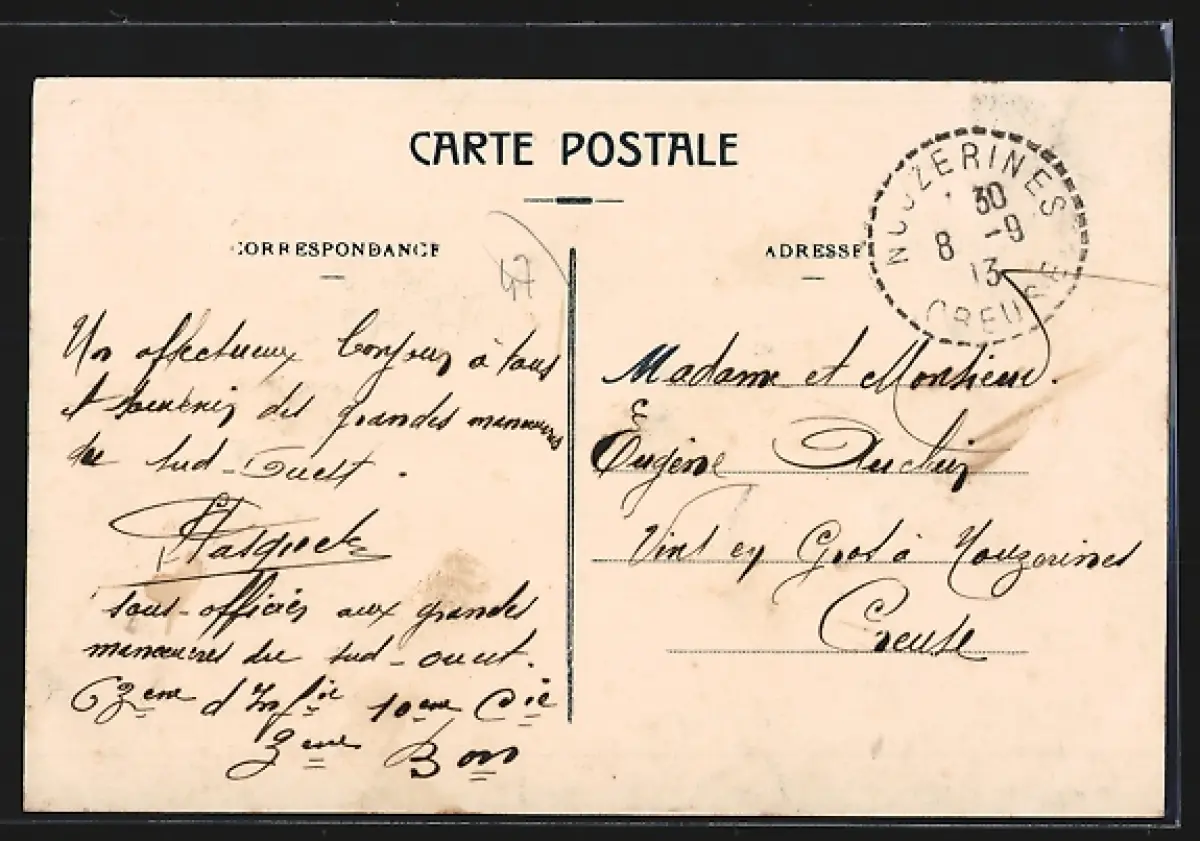 CARTE POSTALE
CORRESPONDANCE
ADRESSE
47
NOUZERINES
30
8 -9
13
CREUSE
Un affectueux bonjour à tous
et souvenir des grandes manœuvres
du Sud-Ouest.
sous-officier aux grandes
manœuvres du sud-ouest.
63eme d'Infie 10eme Cie
3eme Bon
Madame et Monsieur.
Eugène
à Nouzerines
Creuse